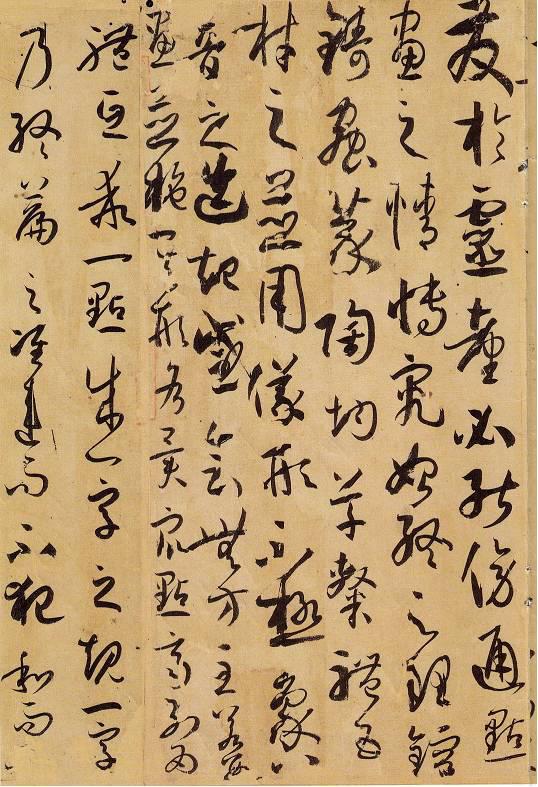 發於靈臺必能傍通點
畫之情博究始終之理鎔
鑄蟲篆陶均草隸體五
材之並用儀形不極象八
音之迭起感會無方至若數
畫並施其形各異眾點齊列為
體互乖一點成一字之規一字
乃終篇之准違而不犯和而